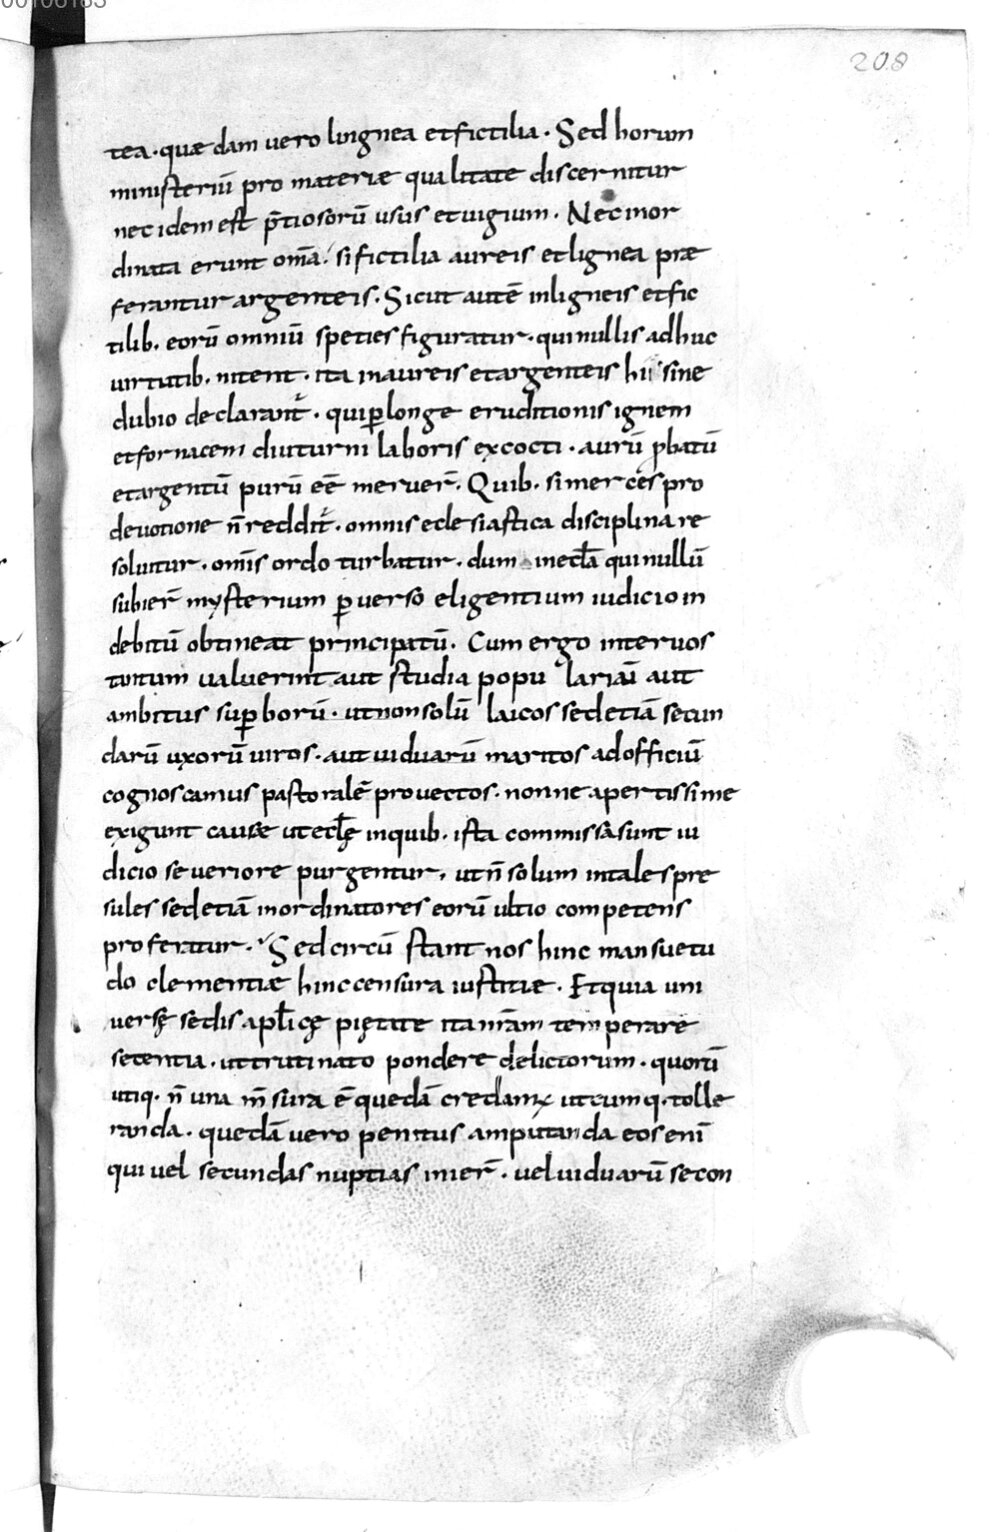 208
tea · quædam vero lingnea et fictilia · Sed horum
ministeriū pro materiæ qualitate discernitur
nec idem est p̄tiosorū usus et vigium · Nec inor
dinata erunt om̄a · si fictilia aureis et lignea præ
ferantur argenteis · Sicut autē in ligneis et fic
tilib. eorū omniū speties figuratur · qui nullis adhuc
virtutib. nitent · ita in aureis et argenteis hii sine
dubio declarant̄ · qui ꝑ longe eruditionis ignem
et fornacem diuturni laboris excocti · aurū ꝓbatū
et argentū purū eē meruer̄ · Quib. si merces pro
devotione n̄ reddit̄ · omnis eclesiastica disciplina re
solvitur · om̄is ordo turbatur · dum in ecl̄a qui nullū
subier̄ mysterium ꝑverso eligentium iudicio in
debitū obtineat principatū · Cum ergo inter vos
tantum valuerint aut studia populariaī aut
ambitus suꝑborū · ut non solū laicos sed etiā secun
darū uxorū viros · aut viduarū maritos ad officiū
cognoscamus pastoralē provectos · nonne apertissime
exigunt causæ ut ecl̄ę in quib. ista commissa sunt iu
dicio severiore purgentur, ut n̄ solum in tales pre
sules sed etiā in ordinatores eorū ultio competens
proferatur · Sed circū stant nos hinc mansuetu
do clementiæ hinc censura iustitiæ · Et quia uni
versę sedis apl̄icę pietate ita nr̄am temperare
setentia · ut trutinato pondere delictorum · quorū
utiq. n̄ una m̄sura ē quedā credam; utcumq. tolle
randa · quedā vero penitus amputanda eos enī
qui vel secundas nuptias inier̄ · vel viduarū se con